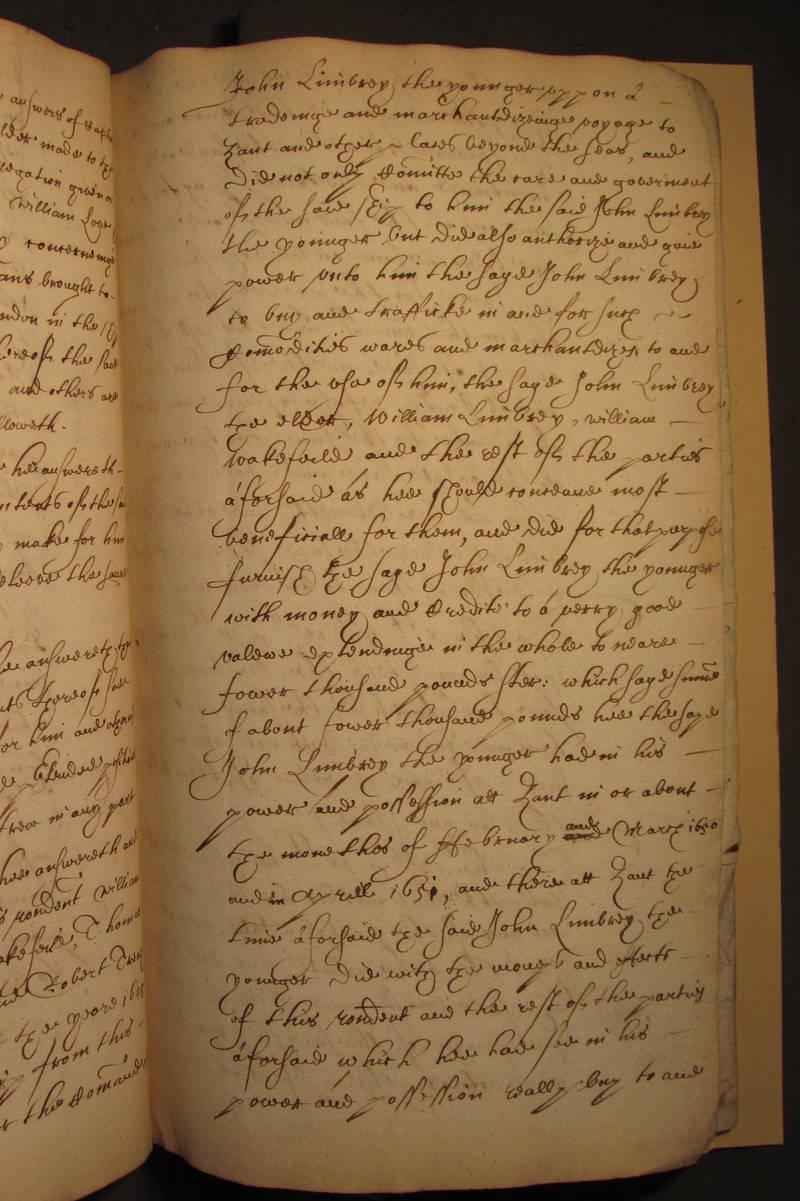 y answers of
lder made to
egation given
William Love
concerneing
ans brought to
ndon in the
hereof the said
and others are
lloweth.
hee answereth
ntents of the
make for him
eleeve the same
he answereth
nts thereof
for him and
trew in any part
hee answereth
rondent William
akefeild, Thomas
Robert
the yeare
from this
r the Comand
John Limbrey the younger uppon a
tradeinge and marchantdizeinge voyage to
Zant and other places beyond the seas, and
did not only Comitte the care and goverment
of the said ship to him the said John Limbrey
the younger but did also authorize and give
power unto him the sayd John Limbrey
to buy and trafficke in and for such
Comodities wares and marchantdizes to and
for the use of him, the sayd John Limbrey
the elder, William Limbrey, William
Wakefeild and the rest of the parties
aforsaid as hee should conceave most
beneficiall for them, and did for that purpose
furnish the sayd John Limbrey the younger
with money and Credite to a verry good
valewe extendinge in the whole to neare
fower thousand pounds ster: which sayd summe
of about fower thousand pounds hee the sayd
John Limbrey the younger had in his
power and possession att Zant in or about
the monethes of ffebruary and March 1650
and in Aprill 1651, and there att Zant the
time aforsaid the said John Limbrey the
younger did with the moneys and effects
of this rondent and the rest of the parties
aforsaid which hee had soe in his
power and possession really buy to and